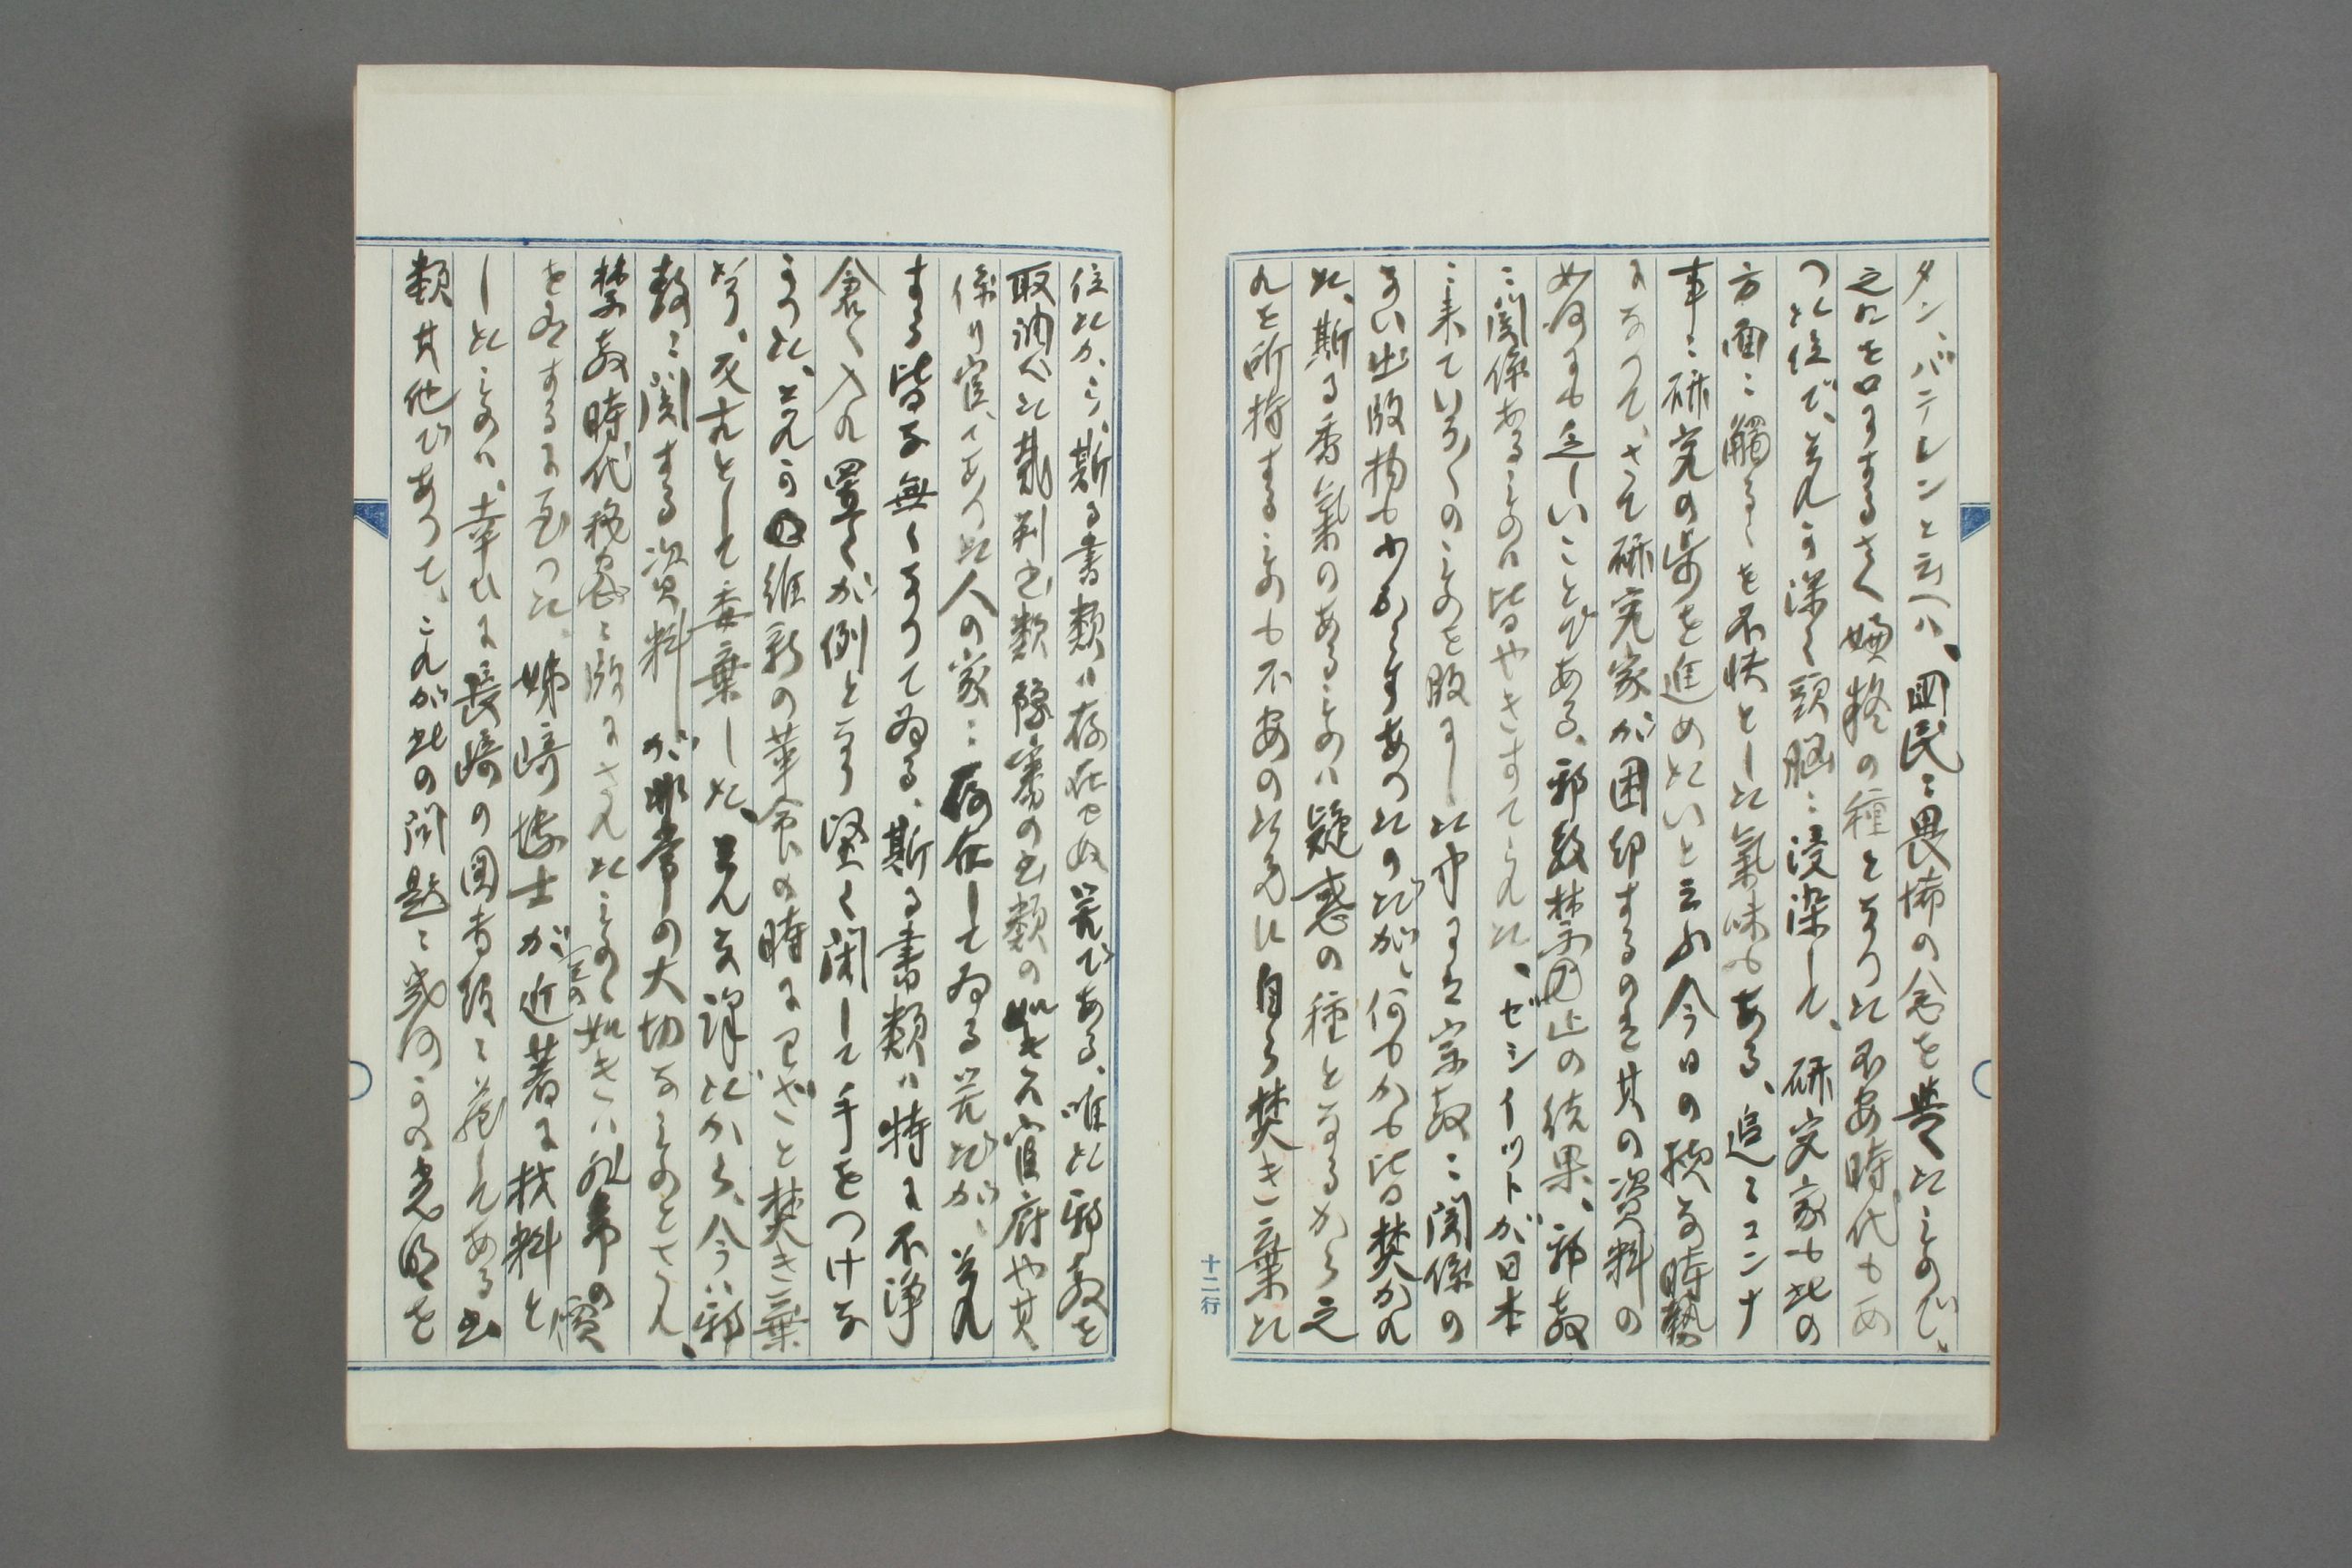 タン、バテレンと云へハ、国民ニ畏怖の念を与へたもので、
之れを口にするさへ嫌疑の種となつた不安時代もあ
つた位で、それが深く頭脳ニ浸染して、研究家も此の
方面ニ觸るゝを不快とした氣味もある、追々コンナ
事ニ研究の歩を進めたいと云ふ今日の様な時勢
になつて、さて研究家が困却するのは其の資料の
如何にも乏しいことである、邪教禁止の結果、邪教
ニ関係あるものハ皆やきすてられた、ゼシイットが日本
ニ来ていろ〱のものを版にした中にも宗教ニ関係の
ない出版物も少からずあつたのだが、何もかも皆焚かれ
た、斯る香氣のあるものハ疑惑の種となるから之
れを所持するものも不安の に自ら焚き棄た
十二行
位だから、斯る書類ハ存在せぬ筈である、唯た邪教を
取調べた裁判書類 審の書類の如きハ官府や其
係り官、であつた人の家ニ存在してゐる筈だが、それ
する皆な無くなつてゐる、斯る書類ハ特に不浄
倉へ入れ置くが例となり堅く閉して手をつけな
かつた、それが維新の革命の時にワざと焚き棄
り、反古として委棄した、そんな譯だから、今ハ邪
教ニ関する資料が非常の大切なものとされ、
禁教時代秘密ニ版にされたもの の如きハ非常の價
を有するに至つた、姉崎博士が近著に材料と
したものハ、幸ひに長崎の図書館ニ蔵してある書
類其他であつて、これが此の問題ニ幾何かの光明を